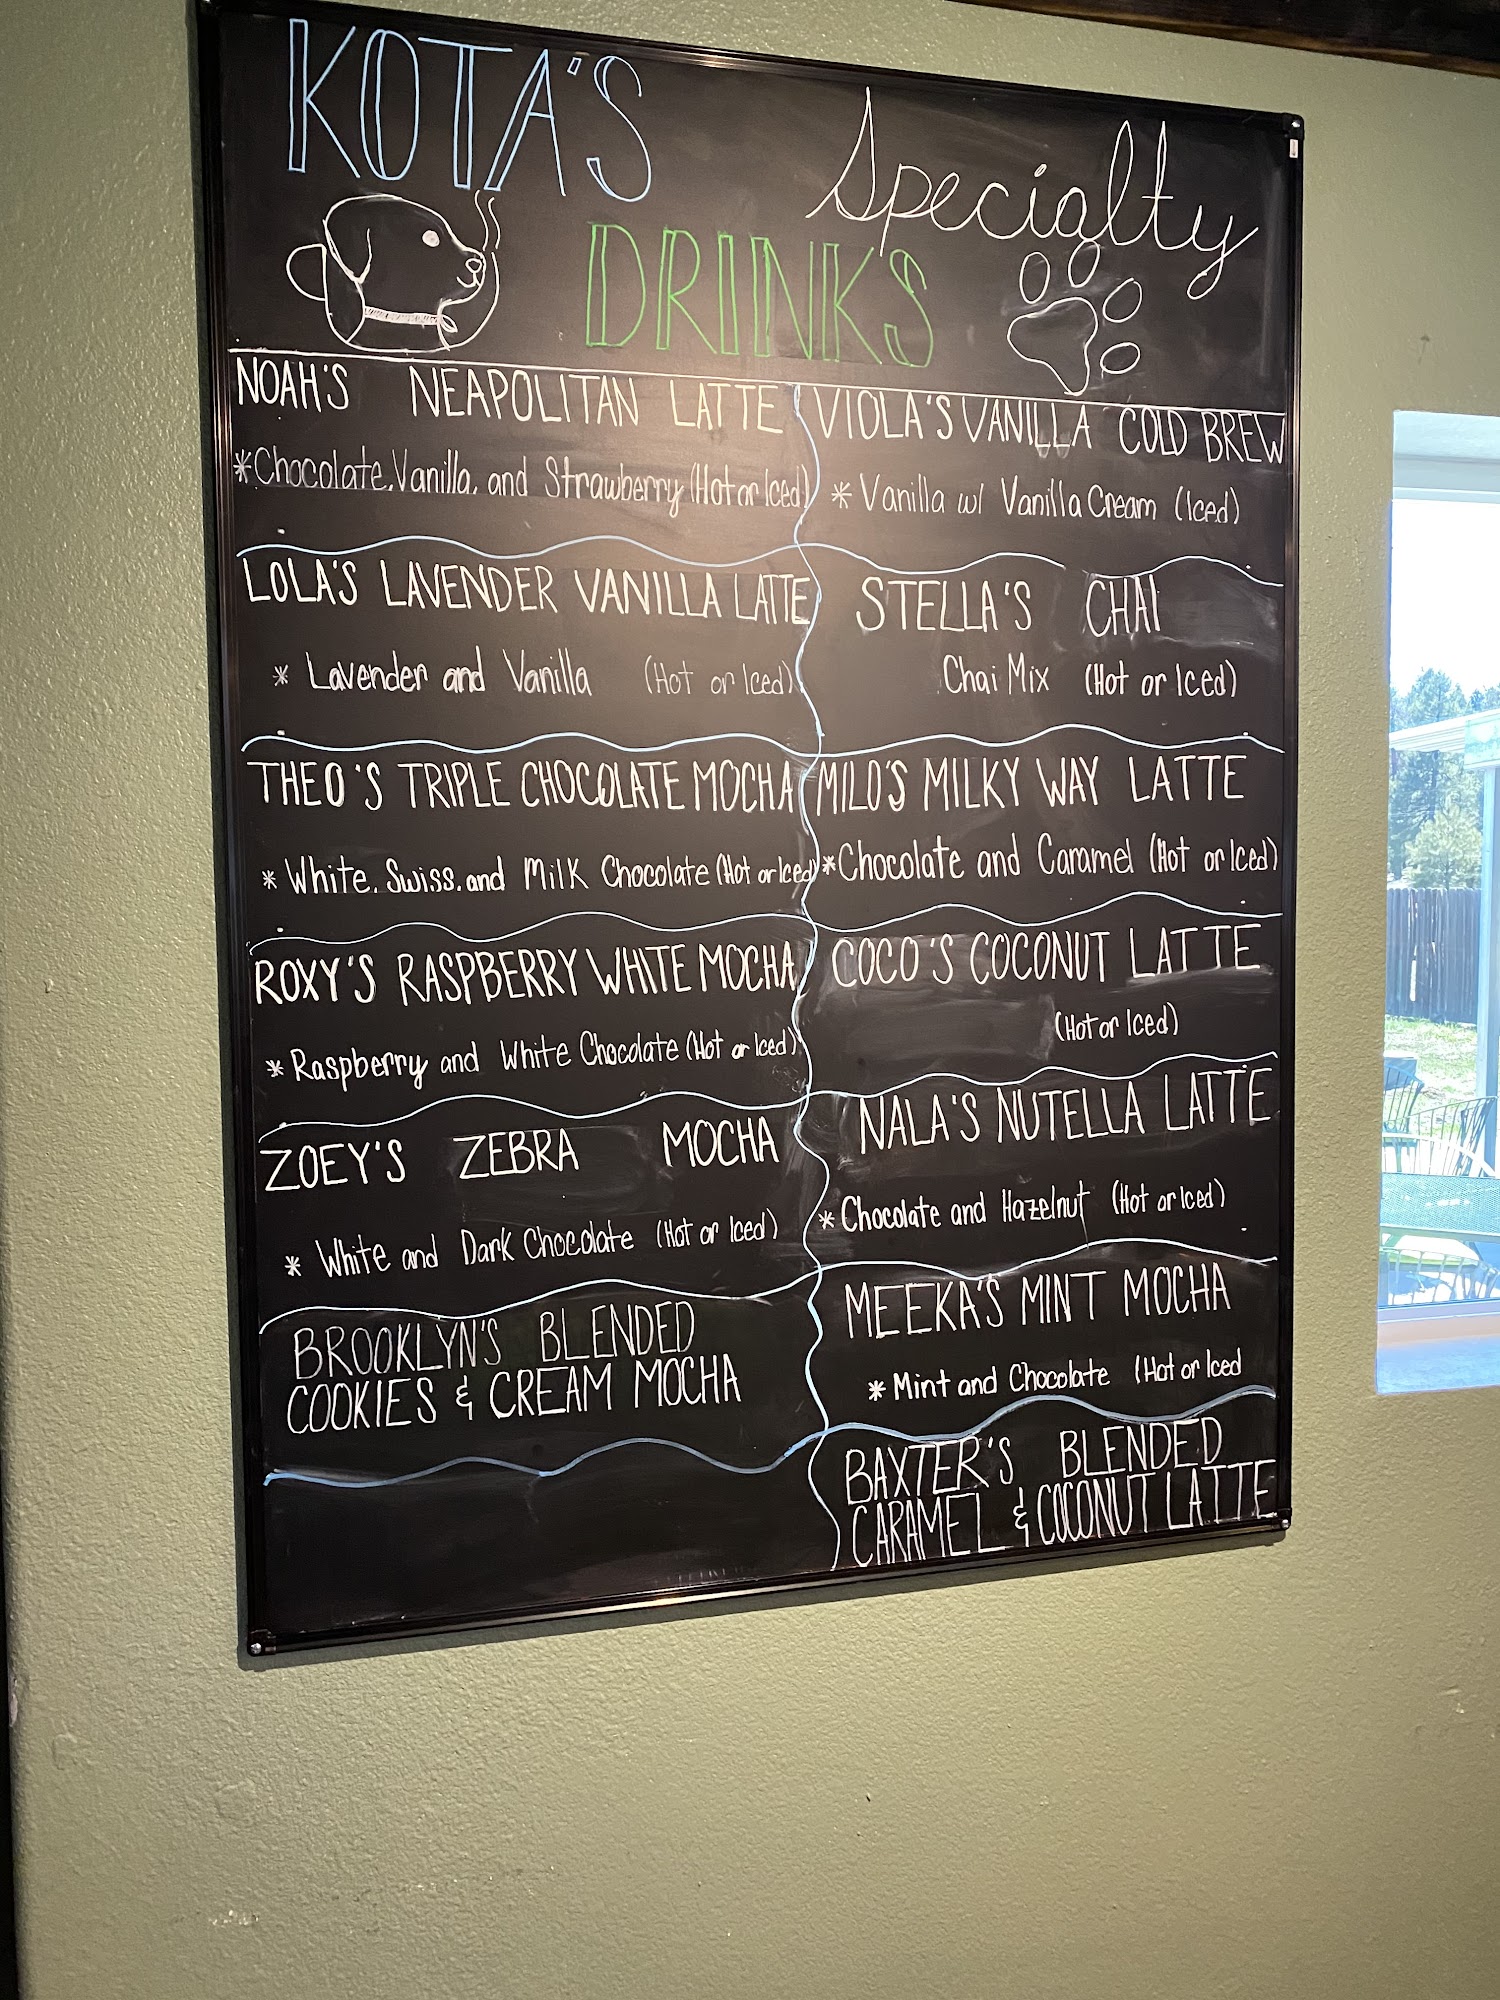 KOTA'S
Specialty
DRINK'S
NOAH'S NEAPOLITAN LATTE
*Chocolate, Vanilla, and Strawberry (Hot or Iced)
LOLA'S LAVENDER VANILLA LATTE
* Lavender and Vanilla (Hot or Iced)
THEO'S TRIPLE CHOCOLATE MOCHA
* White, Swiss, and Milk Chocolate (Hot or Iced)
ROXY'S RASPBERRY WHITE MOCHA
* Raspberry and White Chocolate (Hot or Iced)
ZOEY'S ZEBRA MOCHA
* White and Dark Chocolate (Hot or Iced)
BROOKLYN'S BLENDED
COOKIES & CREAM MOCHA
VIOLA'S VANILLA COLD BREW
* Vanilla w/ Vanilla Cream (Iced)
STELLA'S CHAI
Chai Mix (Hot or Iced)
MILO'S MILKY WAY LATTE
*Chocolate and Caramel (Hot or Iced)
COCO'S COCONUT LATTE
(Hot or Iced)
NALA'S NUTELLA LATTE
* Chocolate and Hazelnut (Hot or Iced)
MEEKA'S MINT MOCHA
* Mint and Chocolate (Hot or Iced
BAXTER'S BLENDED
CARAMEL & COCONUT LATTE